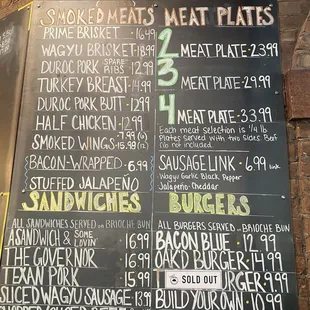 SMOKED MEATS
PRIME BRISKET - 16.99
WAGYU BRISKET 18.99
DUROC PORK SPARE RIBS 12.99
TURKEY BREAST - 14.99
DUROC PORK BUTT - 12.99
HALF CHICKEN - 12.99
SMOKED WINGS - 7.99 (6)
- 15.98 (12)
BACON-WRAPPED - 6.99
STUFFED JALAPEÑO
SANDWICHES
ALL SANDWICHES SERVED ON BRIOCHE BUN
A SANDWICH & SOME LOVIN 16.99
THE GOVERNOR 16.99
TEXAN PORK 15.99
SLICED WAGYU SAUSAGE 13.99
MEAT PLATES
2 MEAT PLATE - 23.99
3 MEAT PLATE - 29.99
4 MEAT PLATE - 33.99
Each meat selection is 1/4 lb
Plates served with two sides.
not included.
SAUSAGE LINK - 6.99 link
Wagyu Garlic Black Pepper
Jalapeño-Cheddar
BURGERS
ALL BURGERS SERVED ON BRIOCHE BUN
BACON BLUE - 12.99
OAKD BURGER - 14.99
SOLD OUT
BURGER - 9.99
BUILD YOUR OWN - 10.99